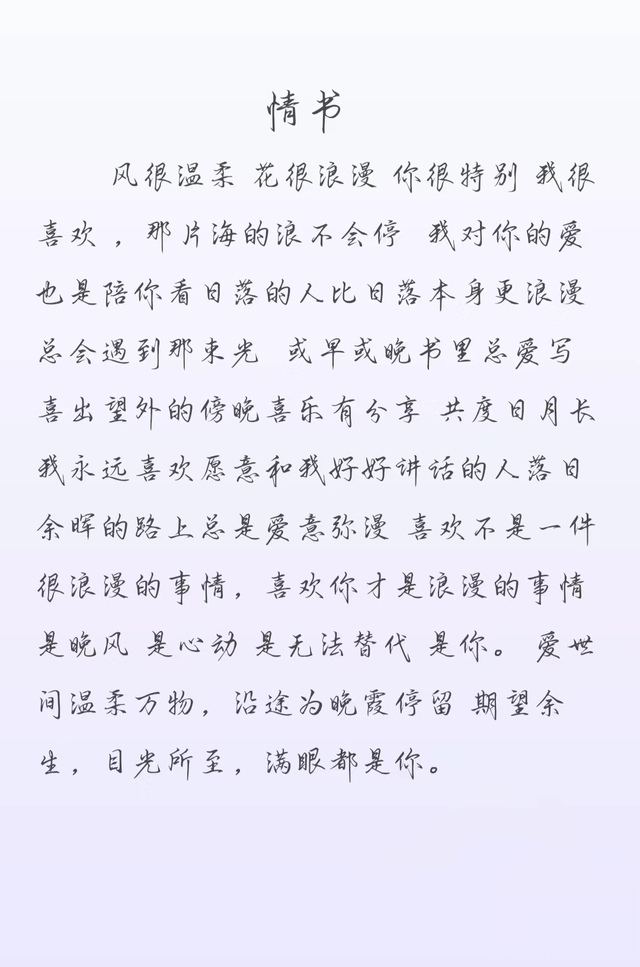 情书
风很温柔 花很浪漫 你很特别 我很
喜欢 ，那片海的浪不会停 我对你的爱
也是陪你看日落的人比日落本身更浪漫
总会遇到那束光 或早或晚书里总爱写
喜出望外的傍晚喜乐有分享 共度日月长
我永远喜欢愿意和我好好讲话的人落日
余晖的路上总是爱意弥漫 喜欢不是一件
很浪漫的事情，喜欢你才是浪漫的事情
是晚风 是心动 是无法替代 是你。 爱世
间温柔万物，沿途为晚霞停留 期望余
生，目光所至，满眼都是你。